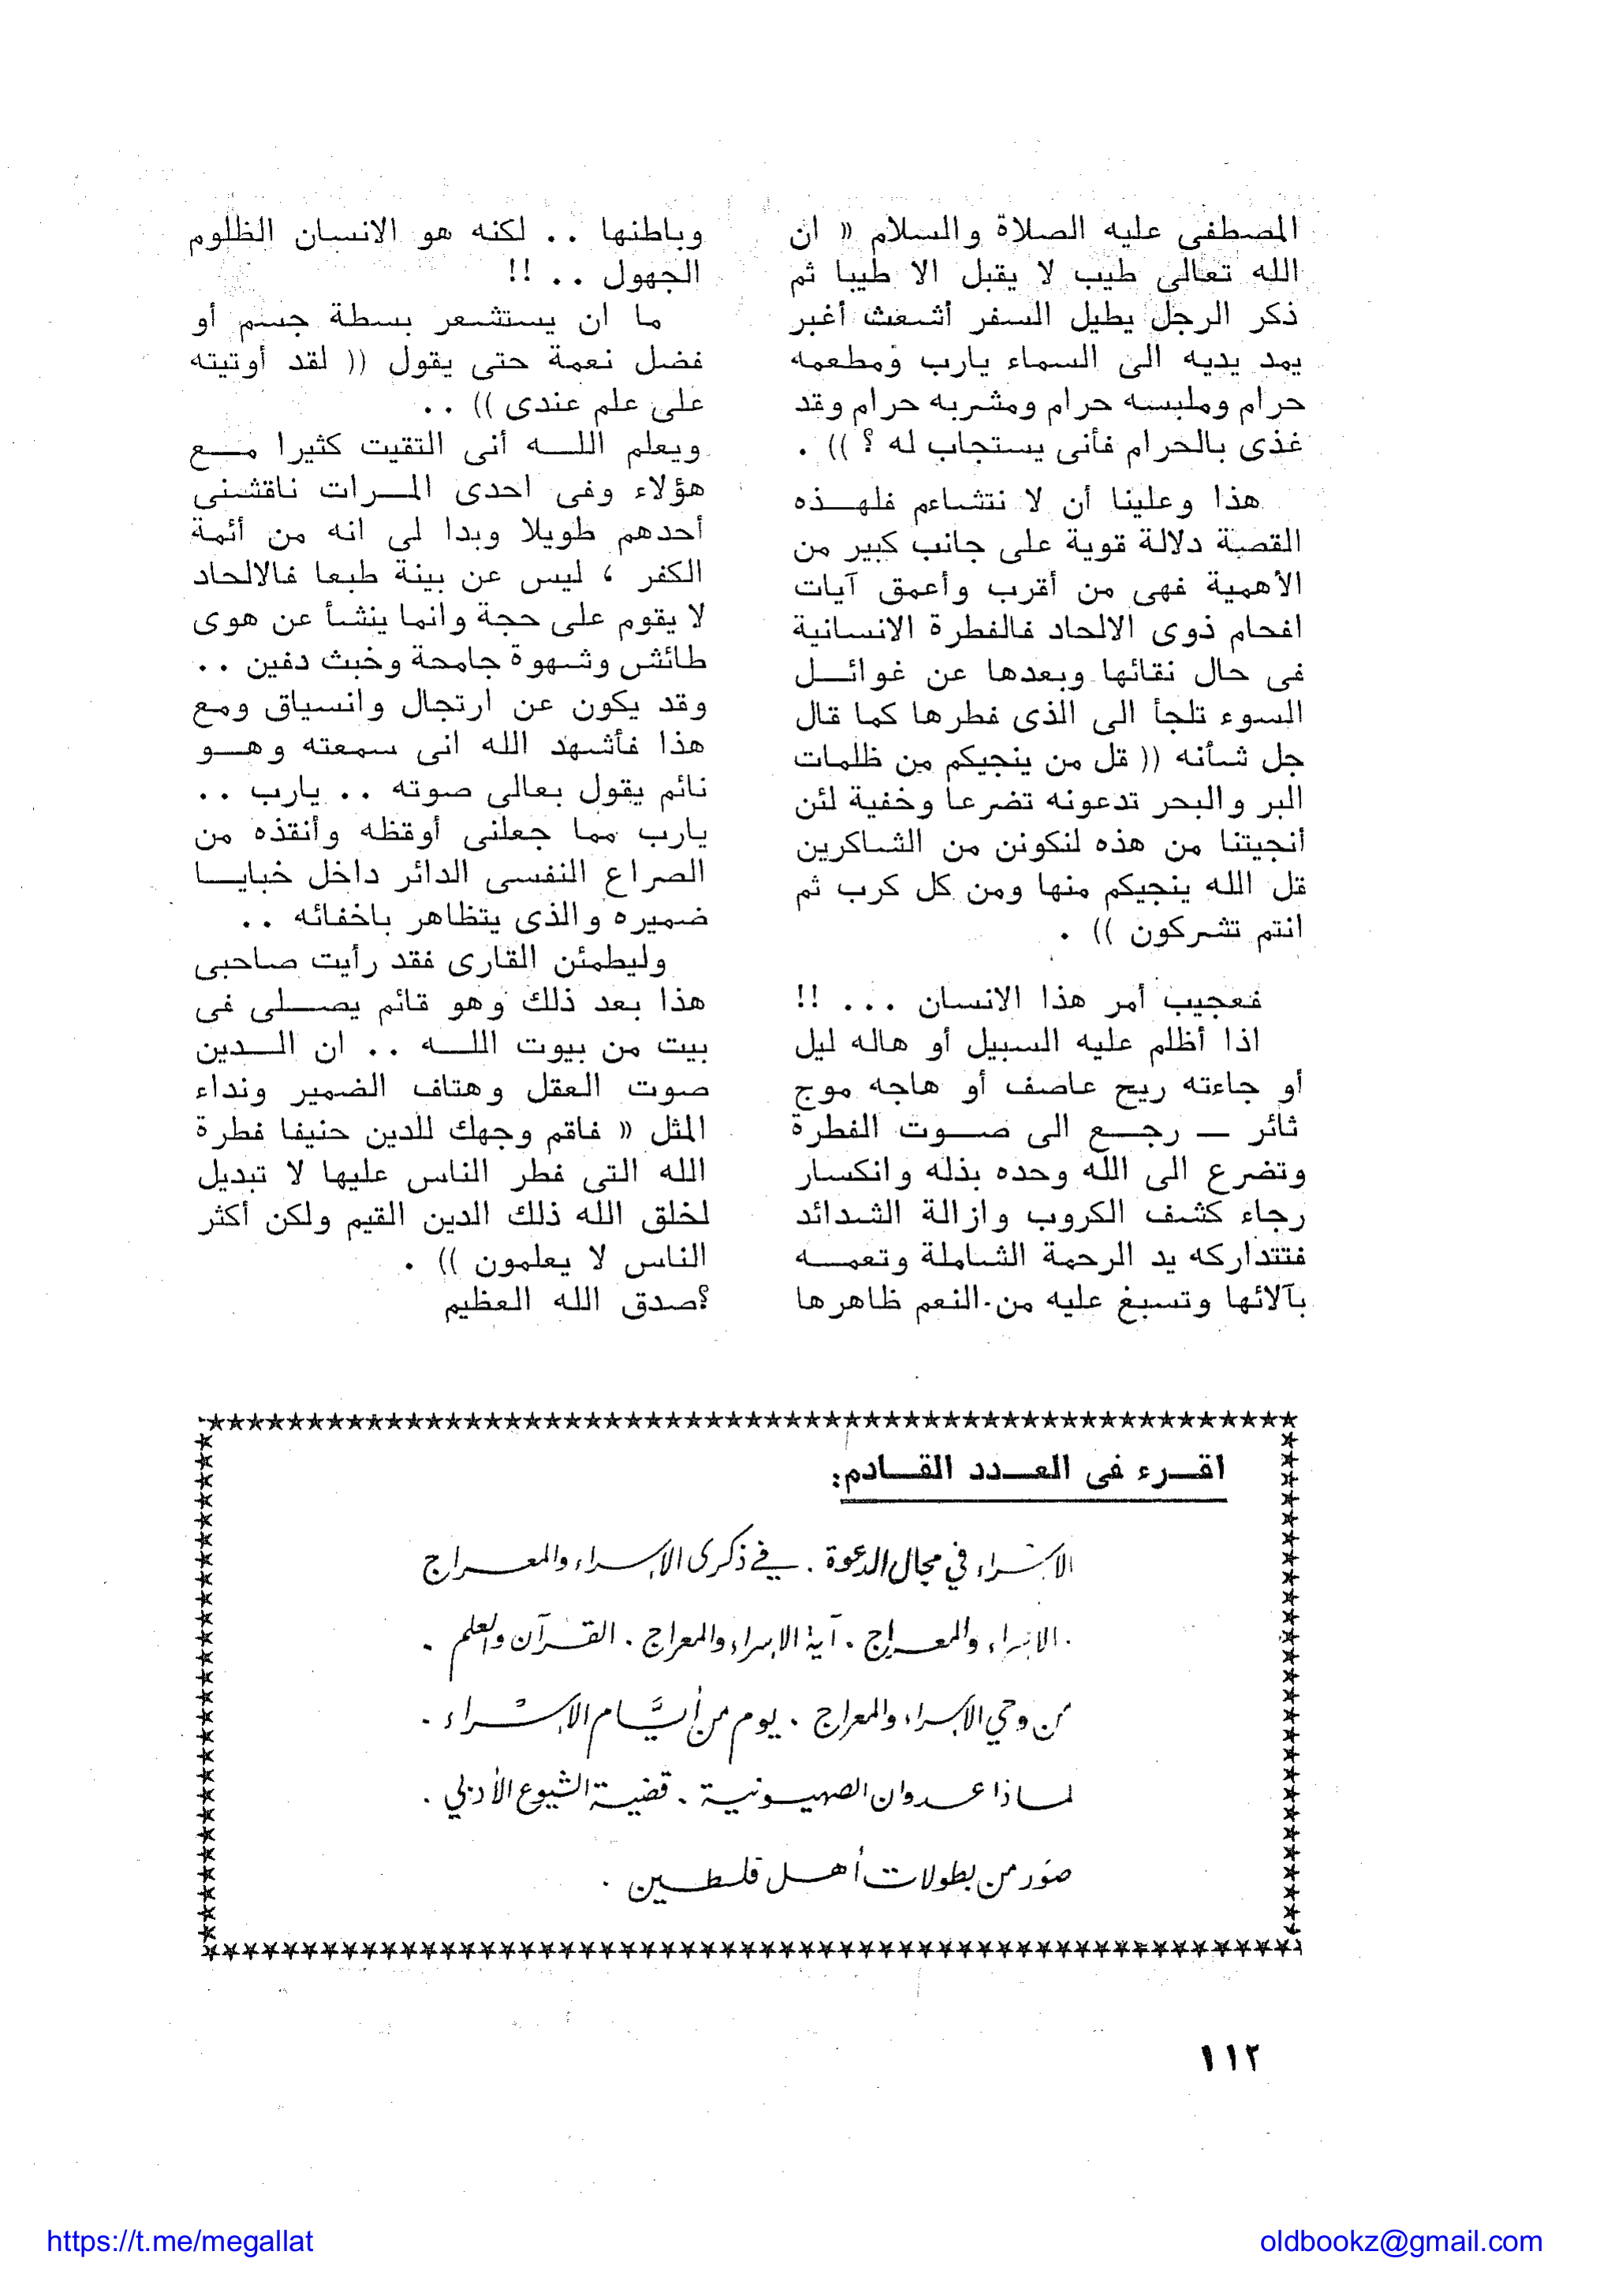 المصطفى عليه الصلاة والسلام « ان
الله تعالى طيب لا يقبل الا طيبا ثم
ذكر الرجل يطيل السفر أشعث أغبر
يمد يديه الى السماء يارب ومطعمه
حرام وملبسه حرام ومشربه حرام وقد
غذى بالحرام فأنى يستجاب له ؟ )) .
هذا وعلينا أن لا نتشاءم فلهـــذه
القصة دلالة قوية على جانب كبير من
الأهمية فهى من أقرب وأعمق آيات
افحام ذوى الالحاد فالفطرة الانسانية
فى حال نقائها وبعدها عن غوائـــل
السوء تلجأ الى الذى فطرها كما قال
جل شأنه (( قل من ينجيكم من ظلمات
البر والبحر تدعونه تضرعا وخفية لئن
أنجيتنا من هذه لنكونن من الشاكرين
قل الله ينجيكم منها ومن كل كرب ثم
انتم تشركون )) .
فعجيب أمر هذا الانسان ... !!
اذا أظلم عليه السبيل أو هاله ليل
أو جاءته ريح عاصف أو هاجه موج
ثائر — رجـــع الى صـــوت الفطرة
وتضرع الى الله وحده بذله وانكسار
رجاء كشف الكروب وازالة الشدائد
فتتداركه يد الرحمة الشاملة وتعمـــه
بآلائها وتسبغ عليه من النعم ظاهرها
وباطنها .. لكنه هو الانسان الظلوم
الجهول .. !!
ما ان يستشعر بسطة جسم أو
فضل نعمة حتى يقول (( لقد أوتيته
على علم عندى )) ..
ويعلم اللـــه أنى التقيت كثيرا مـــع
هؤلاء وفى احدى المـــرات ناقشنى
أحدهم طويلا وبدا لى انه من أئمة
الكفر ، ليس عن بينة طبعا فالالحاد
لا يقوم على حجة وانما ينشأ عن هوى
طائش وشهوة جامحة وخبث دفين ..
وقد يكون عن ارتجال وانسياق ومع
هذا فأشهد الله انى سمعته وهـــو
نائم يقول بعالى صوته .. يارب ..
يارب مما جعلنى أوقظه وأنقذه من
الصراع النفسى الدائر داخل خبايـــا
ضميره والذى يتظاهر باخفائه ..
وليطمئن القارى فقد رأيت صاحبى
هذا بعد ذلك وهو قائم يصـــلى فى
بيت من بيوت اللـــه .. ان الـــدين
صوت العقل وهتاف الضمير ونداء
المثل « فاقم وجهك للدين حنيفا فطرة
الله التى فطر الناس عليها لا تبديل
لخلق الله ذلك الدين القيم ولكن أكثر
الناس لا يعلمون )) .
؟صدق الله العظيم
اقـــرء فى العـــدد القـــادم:
الإسراء في مجال الدعوة . في ذكرى الإسراء والمعراج
. الإسراء والمعراج . آية الإسراء والمعراج . القرآن والعلم .
من وحي الإسراء والمعراج . يوم من أيَّام الإسْراء .
لماذا عدوان الصهيونية . قضية الشيوع الأدبي .
صَور من بطولات أهل فلسطين .
١١٢
https://t.me/megallat
oldbookz@gmail.com